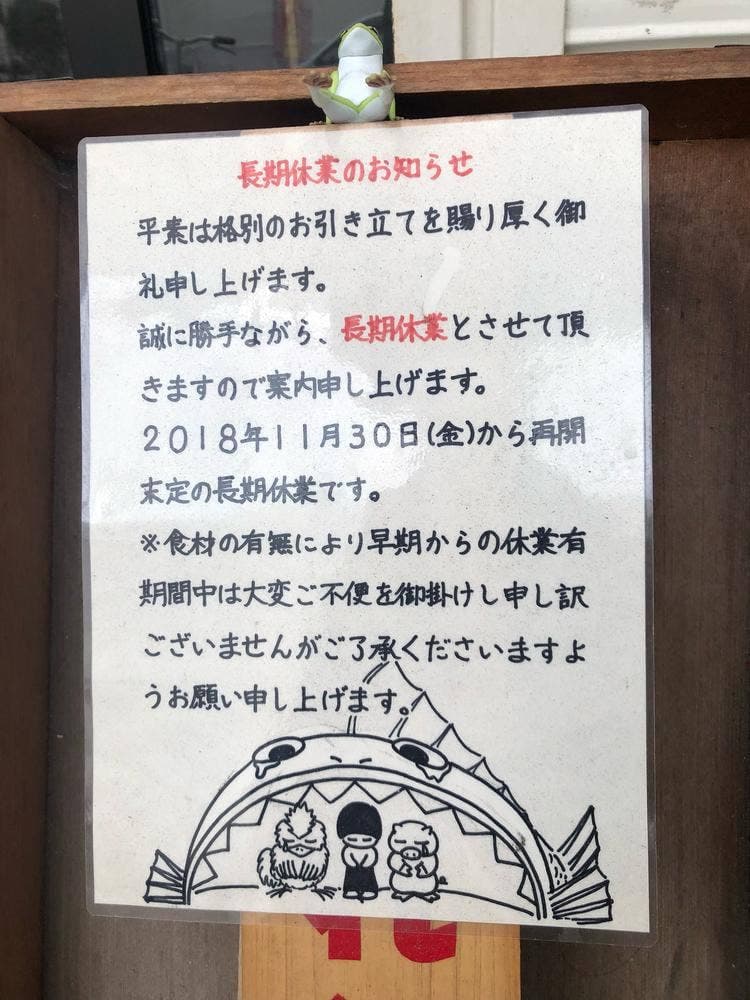 長期休業のお知らせ
平素は格別のお引き立てを賜り厚く御
礼申し上げます。
誠に勝手ながら、長期休業とさせて頂
きますので案内申し上げます。
2018年11月30日(金)から再開
末定の長期休業です。
※食材の有無により早期からの休業有
期間中は大変ご不便を御掛けし申し訳
ございませんがご了承くださいますよ
うお願い申し上げます。